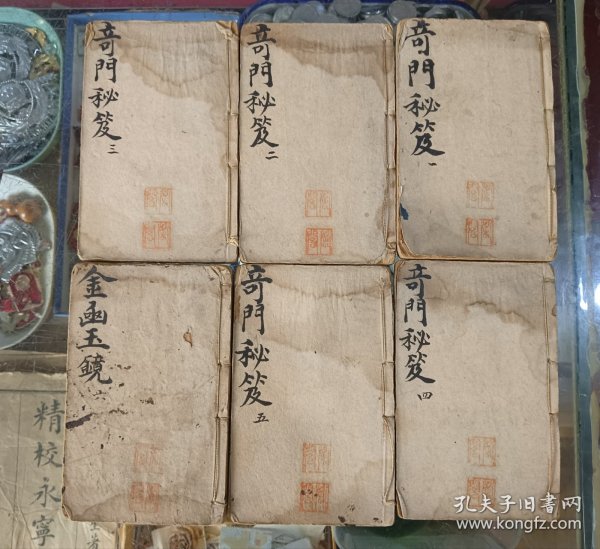 奇門秘笈 一
奇門秘笈 二
奇門秘笈 三
奇門秘笈 四
奇門秘笈 五
金函玉鏡
精校永寧
孔夫子旧書网
www.kongfz.com